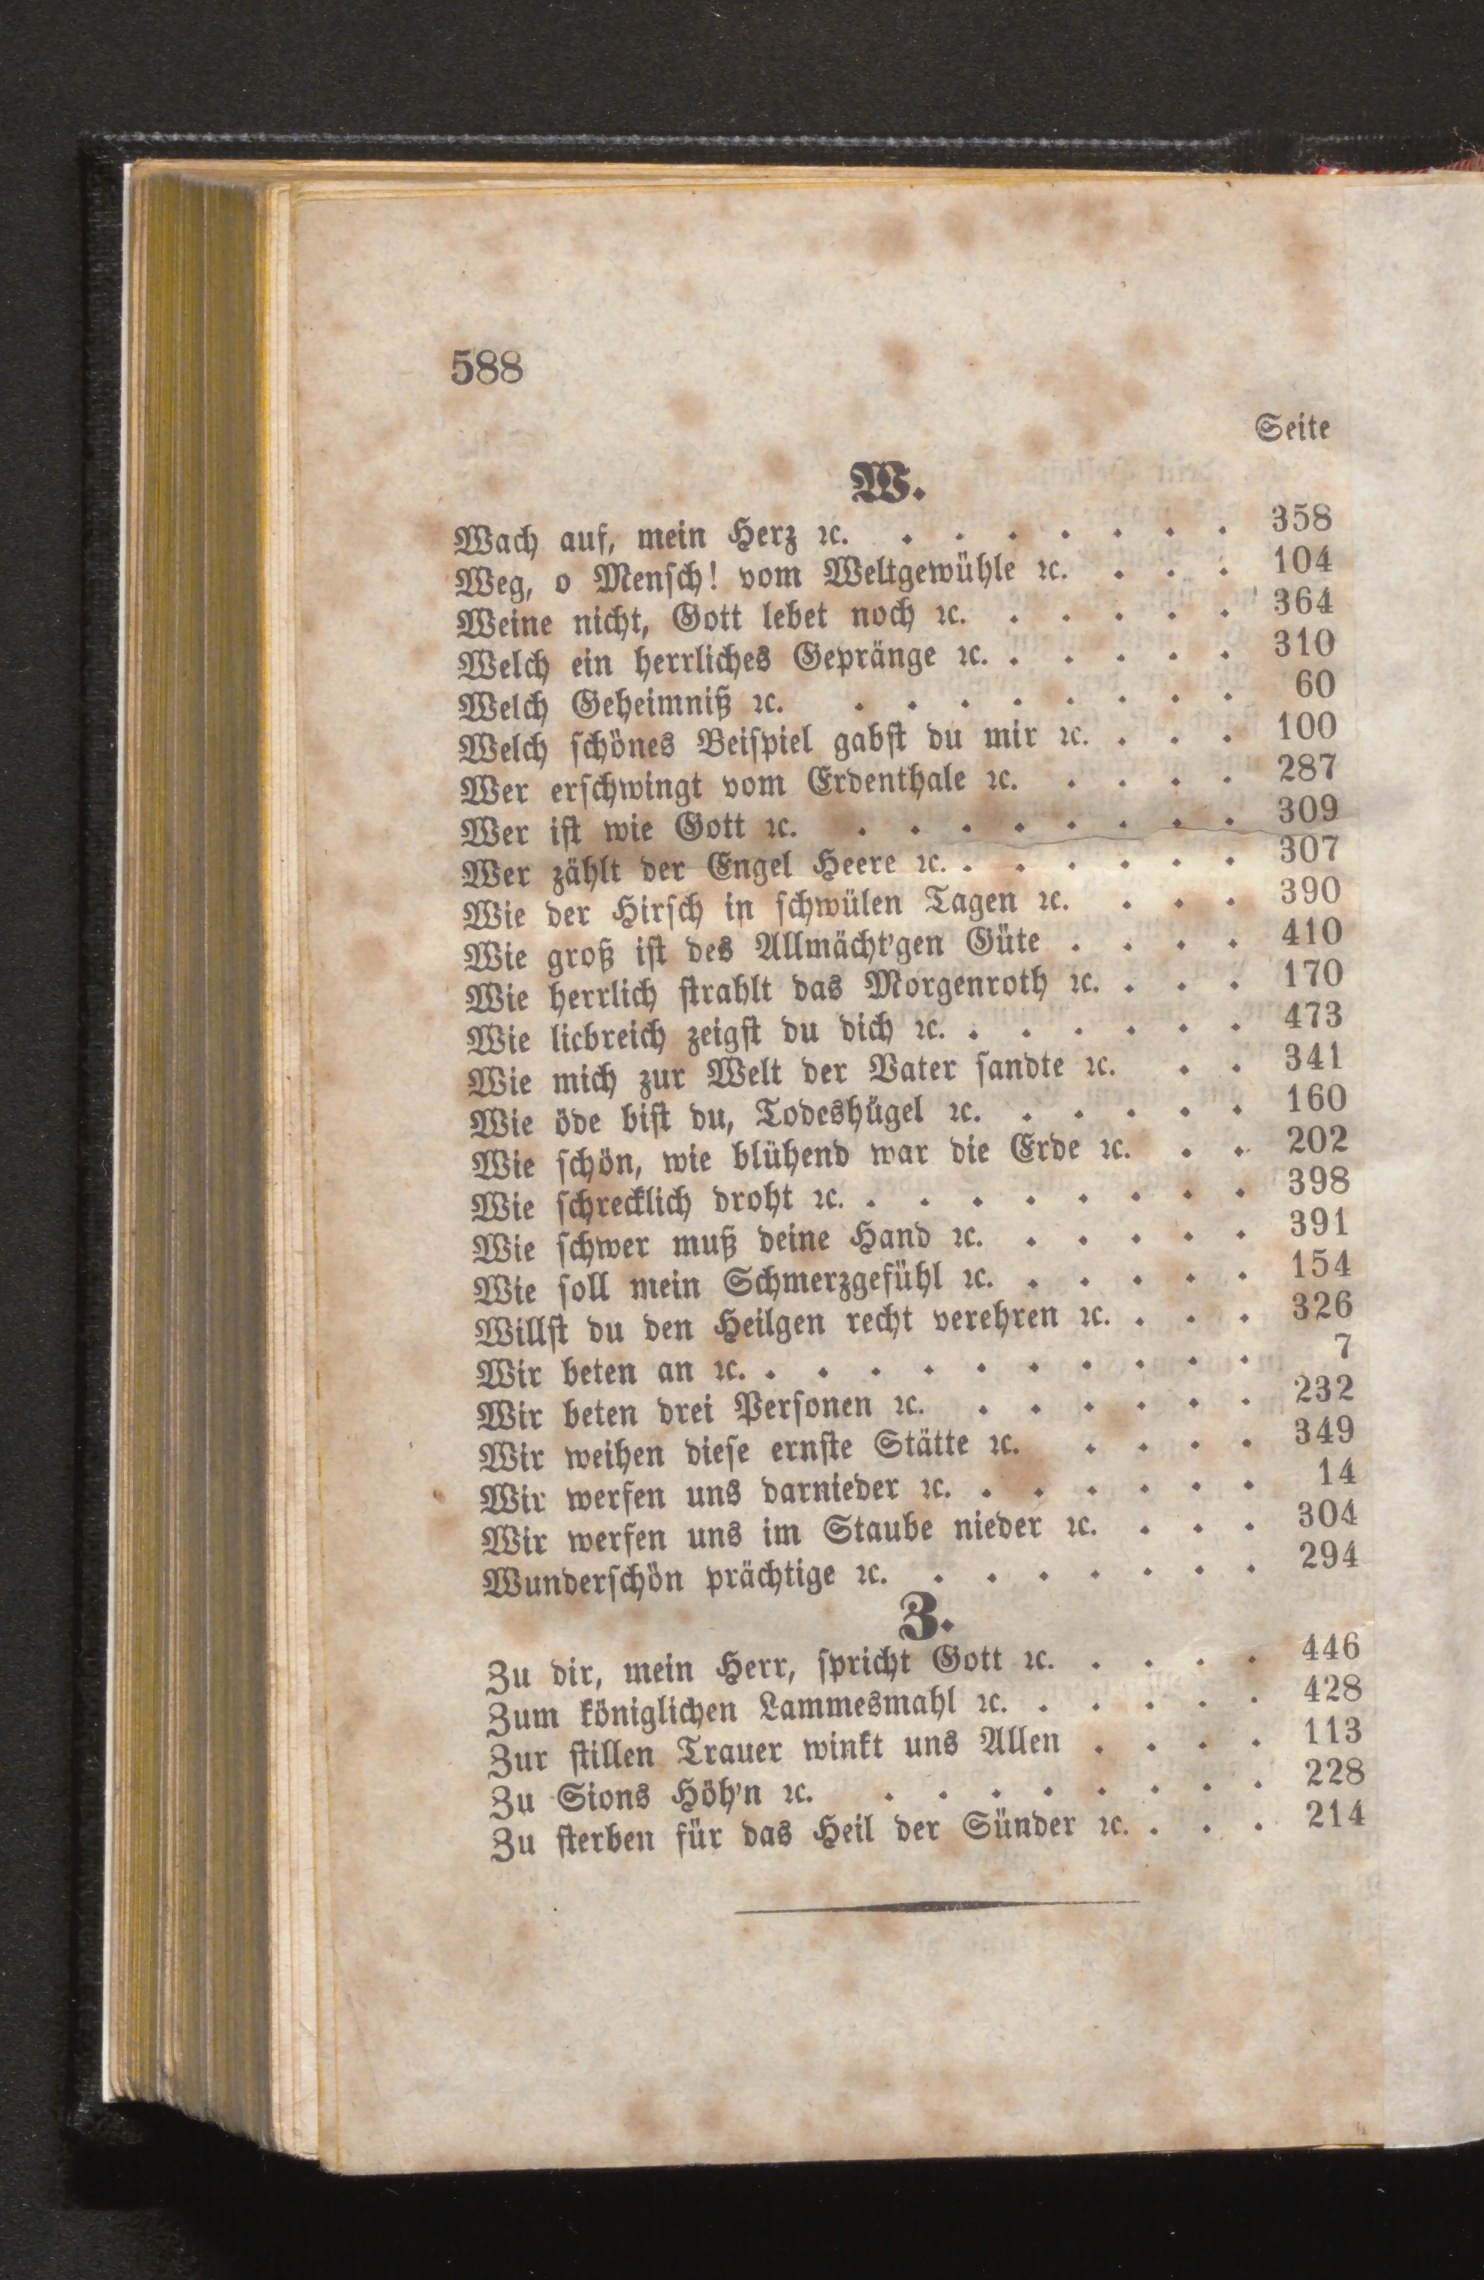 588
Seite
W.
Wach auf, mein Herz ꝛc. . . . . . . . 358
Weg, o Menſch! vom Weltgewühle ꝛc. . . . 104
Weine nicht, Gott lebet noch ꝛc. . . . . . 364
Welch ein herrliches Gepränge ꝛc. . . . . . 310
Welch Geheimniß ꝛc. . . . . . . . . 60
Welch ſchönes Beiſpiel gabſt du mir ꝛc. . . . 100
Wer erſchwingt vom Erdenthale ꝛc. . . . . 287
Wer iſt wie Gott ꝛc. . . . . . . . . 309
Wer zählt der Engel Heere ꝛc. . . . . . . 307
Wie der Hirſch in ſchwülen Tagen ꝛc. . . . 390
Wie groß iſt des Allmächt'gen Güte . . . . 410
Wie herrlich ſtrahlt das Morgenroth ꝛc. . . . 170
Wie liebreich zeigſt du dich ꝛc. . . . . . . 473
Wie mich zur Welt der Vater ſandte ꝛc. . . 341
Wie öde biſt du, Todeshügel ꝛc. . . . . . 160
Wie ſchön, wie blühend war die Erde ꝛc. . . 202
Wie ſchrecklich droht ꝛc. . . . . . . . . 398
Wie ſchwer muß deine Hand ꝛc. . . . . . 391
Wie ſoll mein Schmerzgefühl ꝛc. . . . . . 154
Willſt du den Heilgen recht verehren ꝛc. . . . 326
Wir beten an ꝛc. . . . . . . . . . . 7
Wir beten drei Perſonen ꝛc. . . . . . . 232
Wir weihen dieſe ernſte Stätte ꝛc. . . . . 349
Wir werfen uns darnieder ꝛc. . . . . . . 14
Wir werfen uns im Staube nieder ꝛc. . . . 304
Wunderſchön prächtige ꝛc. . . . . . . . 294
Z.
Zu dir, mein Herr, ſpricht Gott ꝛc. . . . . 446
Zum königlichen Lammesmahl ꝛc. . . . . . 428
Zur ſtillen Trauer winkt uns Allen . . . . 113
Zu Sions Höh'n ꝛc. . . . . . . . . 228
Zu ſterben für das Heil der Sünder ꝛc. . . . 214